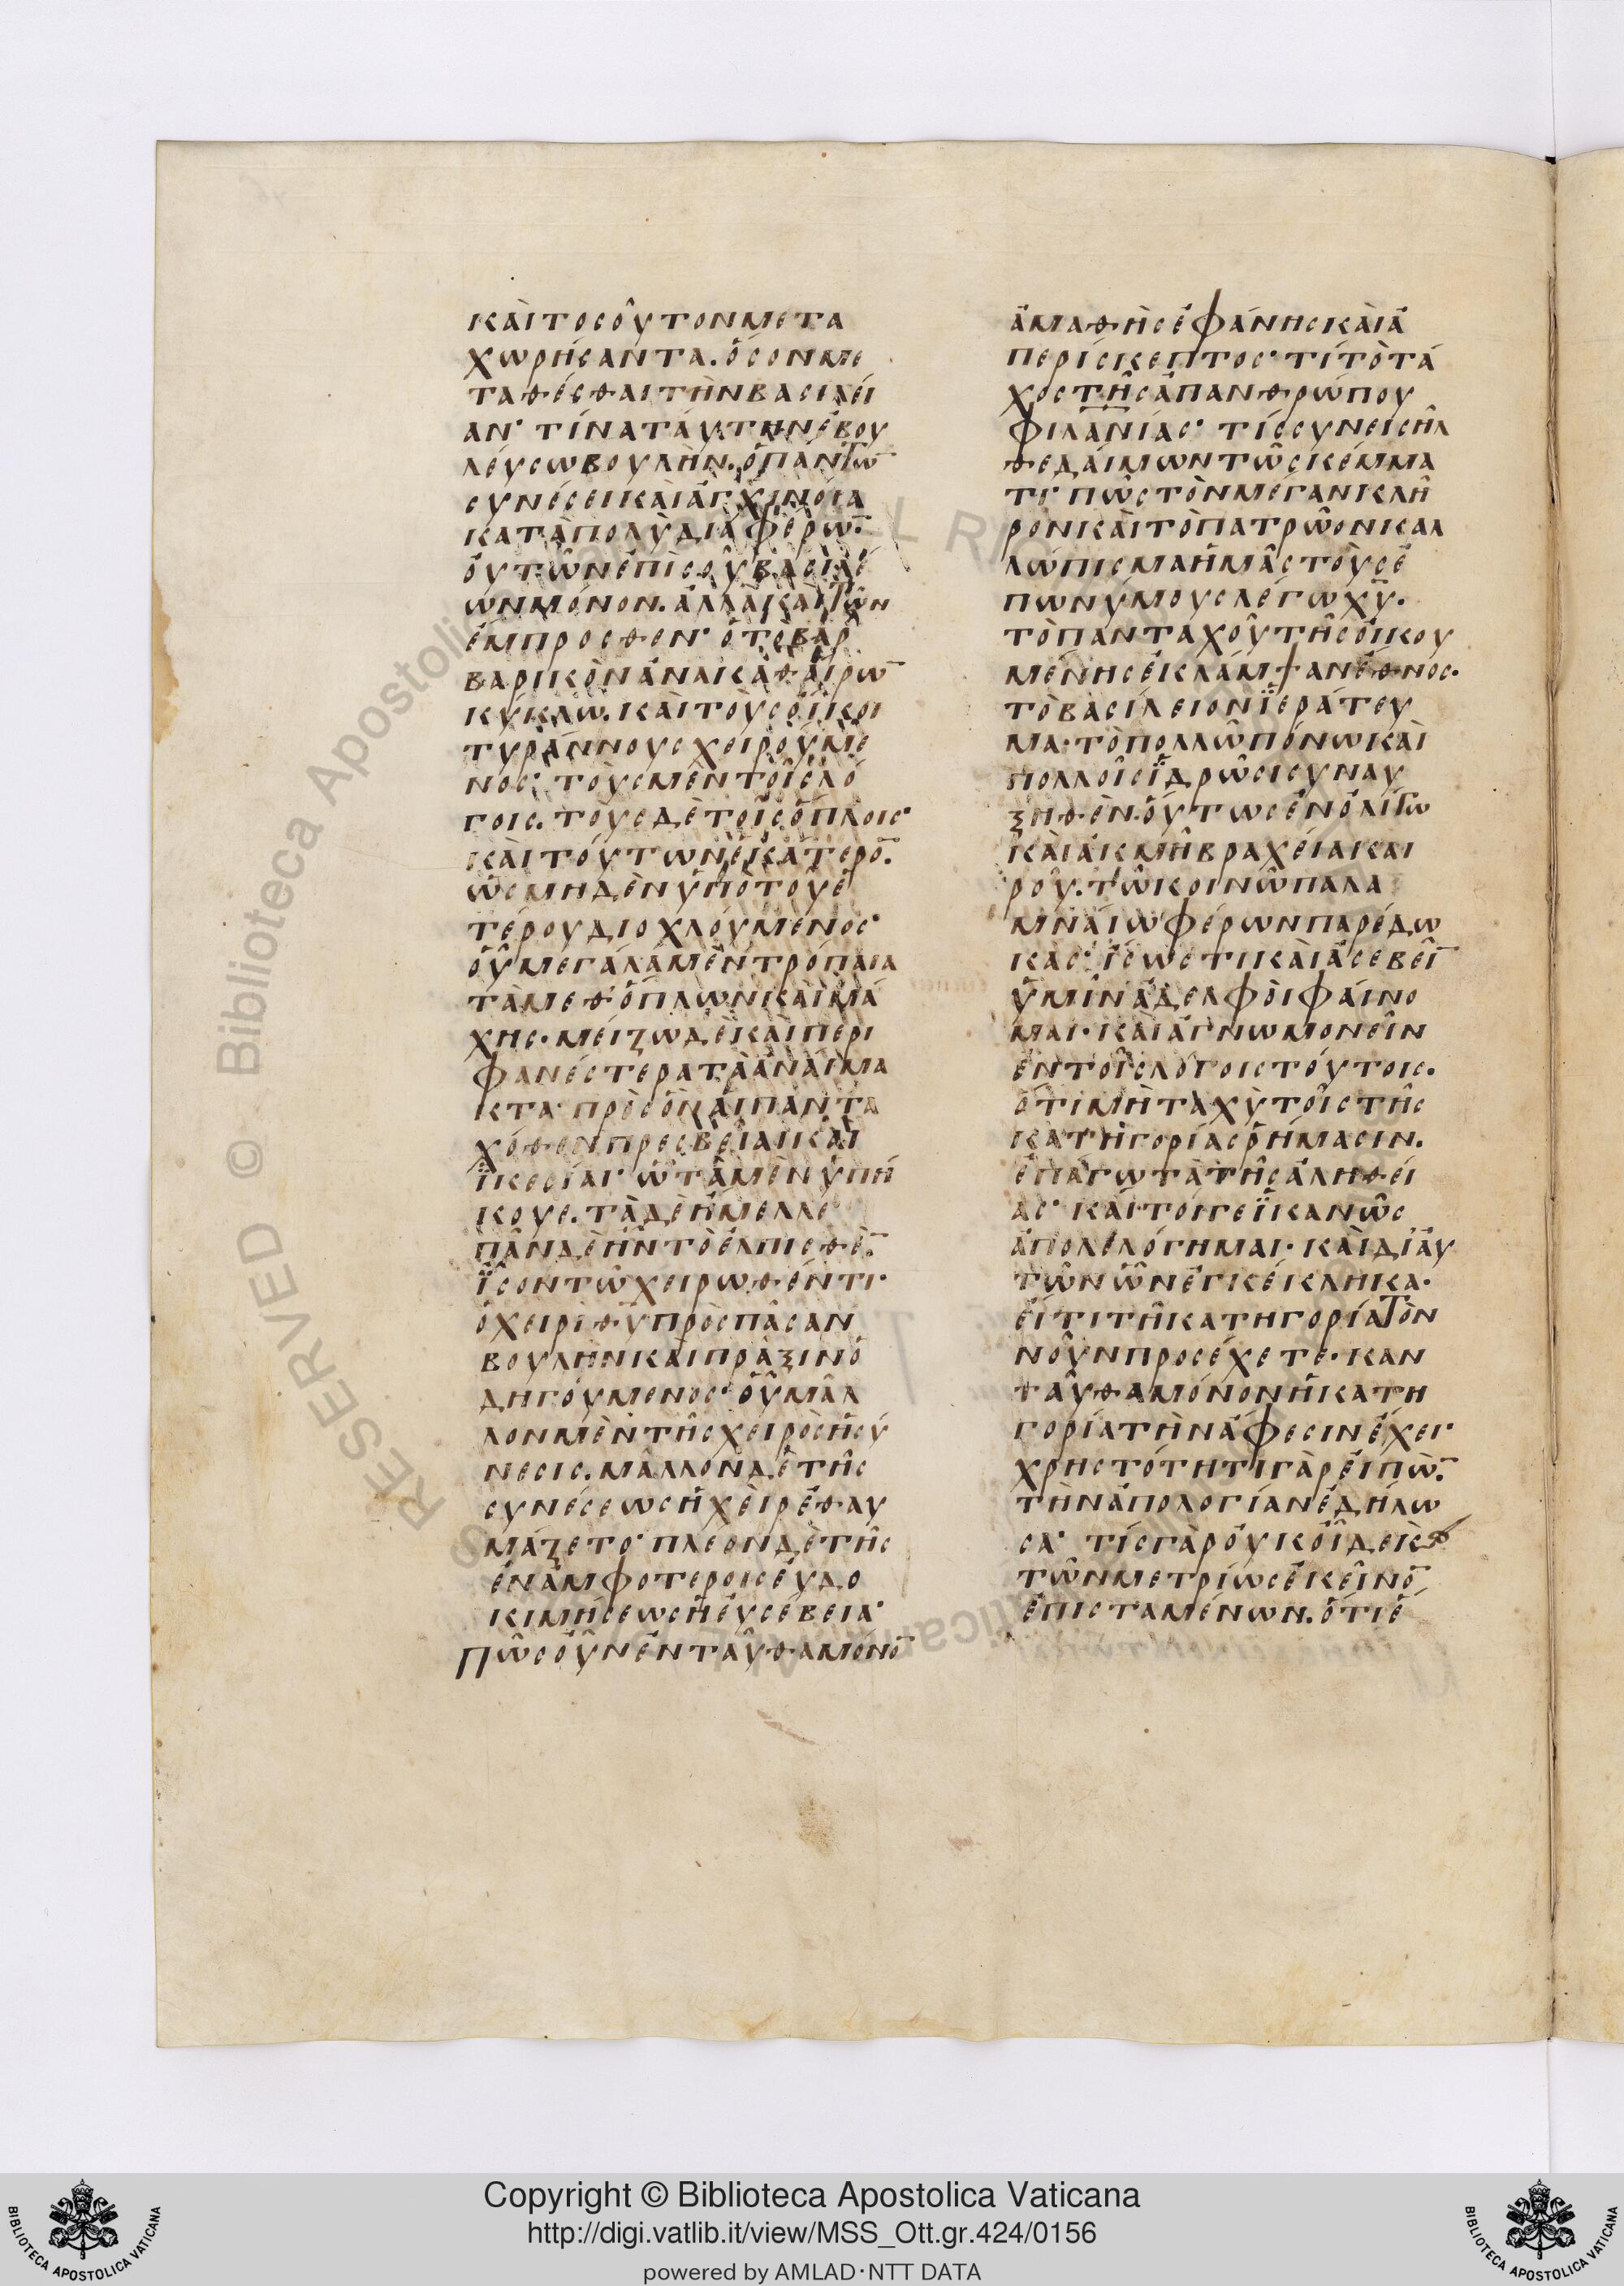 κὰιτοσοῦτονμετα
χωρήσαντα. ὅσονμε
ταθέσθαιτὴνβασιλεί
αν· τίναταύτηνἐβου
λεύσωβουλήν. ὁπάντω̅
συνέσεικαὶἀγχινοία
κατὰπολὺδιαφέρω̅.
οὐτῶνἐπὶσοῦβασιλέ
ωνμόνον. ἀλλὰκαὶτῶν
ἔμπροσθεν· ὁτὸβαρ
βαρικὸνἀναικαθαίρω̅
κύκλω. κὰιτοὺςοἴκοι
τυράννουςχειρούμε
νος· τοὺςμὲντοῖςλό
γοις. τοὺςδὲτοῖςὅπλοις·
κὰιτούτωνἑκάτερο̅.
ὡςμηδὲνὑπὸτοῦἑ
τέρουδιοχλούμενος·
οὗμεγάλαμὲντρόπαια
τὰμεθ'ὅπλωνκαὶμά
χης· μείζωδεκαὶπερι
φανέστερατὰἀναίμα
κτα· πρὸςὃνἁιπαντα
χόθενπρεσβεῖαικαὶ
ϊκεσίαι· ὧτὰμὲνὑπή
κουε. τὰδὲἤμελλε
πᾶνδὲἦντὸἐλπισθὲ̅.
ἴσοντῶχειρωθέντι·
ὁχειρὶθ̅υ̅πρὸςπᾶσαν
βουλὴνκαιπρᾶξινὁ
δηγούμενος· οὗμᾶλ
λονμὲντῆςχειρὸςἡσύ
νεσις. μᾶλλονδὲτῆς
συνέσεωςἡχεὶρἐθαυ
μάζετο· πλέονδὲτῆς
ἐνἀμφοτέροιςἐυδο
κιμήσεωςἡἐυσέβεια·
Πῶςοὖνἐνταῦθαμόνο̅
ἀμαθὴςἐφάνηςκὰιἀ
περίσκεπτος· τίτὸτά
χοςτῆςἀπανθρώπου
φιλα̅ν̅ίας· τίςσυνεισῆλ
θεδαίμωντῶσκέμμα
τι· πῶςτὸνμέγανκλῆ
ρονκὰιτὸπατρῶονκαλ
λώπισμαἡμᾶςτοὺςἐ
πωνύμουςλέγωχ̅υ̅.
τὸπανταχοῦτῆςὀικου
μένηςἐκλάμψανἔθνος.
τὸβασίλειονϊεράτευ
μα· τὸπολλῶπόνωκὰι
πολλοῖςϊδρῶσισυναυ
ξηθὲν. οὕτωςἐνὀλίγω
κὰιἀκμῆβραχείακαι
ροῦ. τῶκοινῶπαλα
μναίωφέρωνπαρέδω
κας· ἴσωςτικὰιἀσεβεῖ̅
ὑμῖνἀδελφὸιφαίνο
μαι· κὰιἀγνωμονεῖν
ἐντοῖςλόγοιςτούτοις.
ὅτιμὴταχὺτοῖςτῆς
κατηγορίαςῥήμασιν.
ἐπάγωτὰτῆςἀληθεί
ας· κάιτοιγεϊκανῶς
ἀπολελόγημαι· κὰιδι'ἀυ
τῶνὧνἐγκέκληκα·
ἔιτιτῆκατηγορίατὸν
νοῦνπροσέχετε· καν
ταῦθαμόνονἡκατη
γορίατὴνἄφεσινἔχει·
χρηστότητιγὰρἐιπὼ̅.
τὴνἀπολογίανἐδήλω
σα· τίςγὰροὐκοἶδεκὰι
τῶνμετρίωςἐκεῖνο̅
ἐπισταμένων. ὅτιἐ
Copyright © Biblioteca Apostolica Vaticana
http://digi.vatlib.it/view/MSS_Ott.gr.424/0156
powered by AMLAD·NTT DATA
BIBLIOTECA APOSTOLICA VATICANA
BIBLIOTECA APOSTOLICA VATICANA